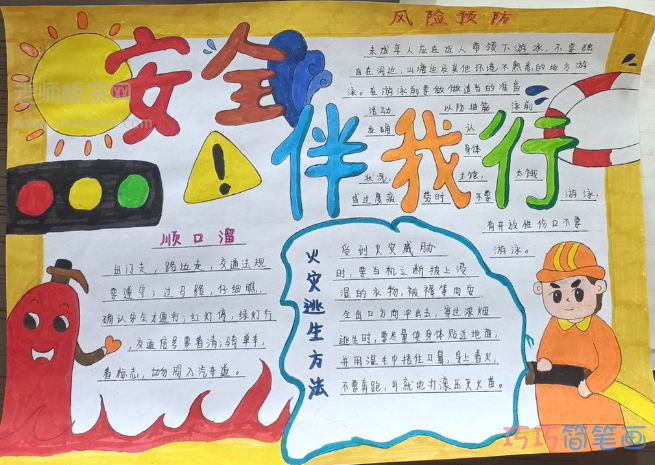 安全
伴我行
风险预防
未成年人应在成人带领下游泳,不要独
自在河边,山塘边及其他环境不熟悉的地方游
泳。在游泳前要做做适当的准备
活动 以防抽筋 泳前
应明 认
身体
状况, 太饱、 太饿
或过度疲 劳时 不要 游泳,
有开放性伤口不要
游泳。
顺口溜
出门走,路边走,交通法规
要遵守;过马路,仔细瞧,
确认安全才通行;红灯停,绿灯行
,交通信号要看清;骑单车,
看标志,切勿闯入汽车道。
火灾逃生方法
受到火灾威胁
时,要当机立断披上浸
湿的衣物,被褥等向安
全出口方向冲出去,穿过浓烟
逃生时,要尽量使身体贴近地面,
并用湿毛巾捂住口鼻,身上着火,
不要奔跑,可就地打滚压灭火苗。
巧巧简笔画